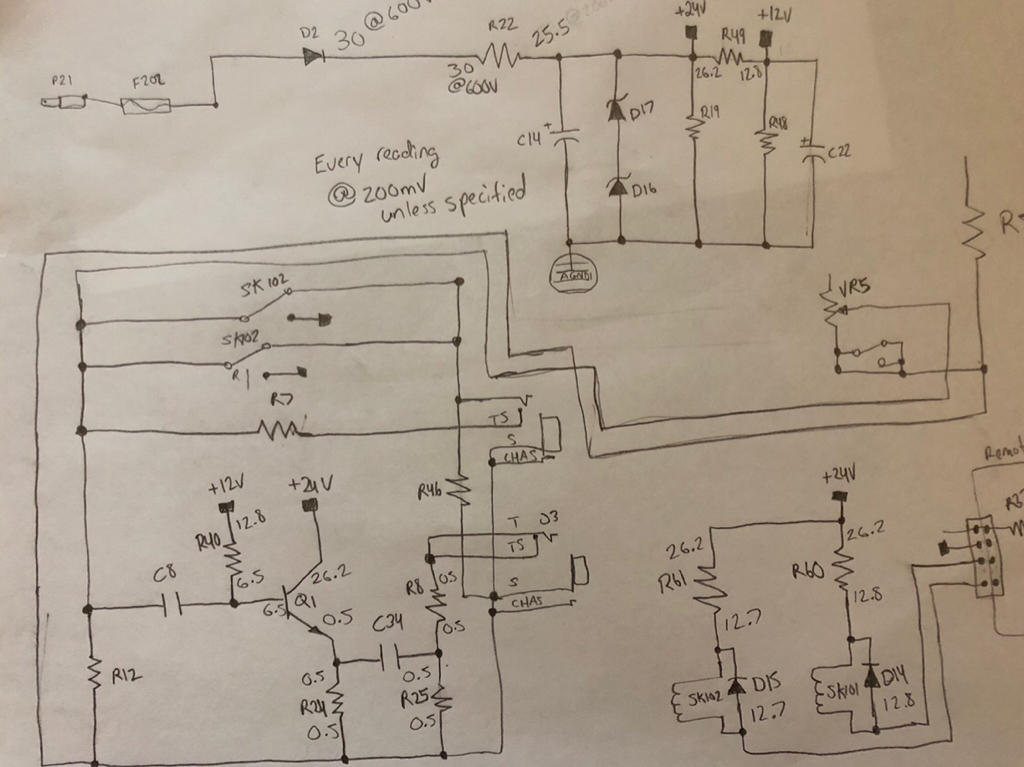 D2
30 @600V
R22
25.5
@200
+24V
R49
+12V
P21
F202
30
@600V
26.2
12.8
D17
R19
R18
C14
+
+
C22
Every reading
@ 200mV
unless specified
D16
AGND1
SK102
SK102
R1
VR5
R7
TS
S
CHAS
R46
+12V
+24V
+24V
Remot
12.8
R40
T
J3
TS
26.2
26.2
R61
R60
C8
6.5
26.2
R8
0.5
6.5
Q1
0.5
C34
0.5
S
CHAS
12.8
12.7
R12
0.5
0.5
R24
0.5
R25
0.5
SK102
D15
12.7
SK101
D14
12.8